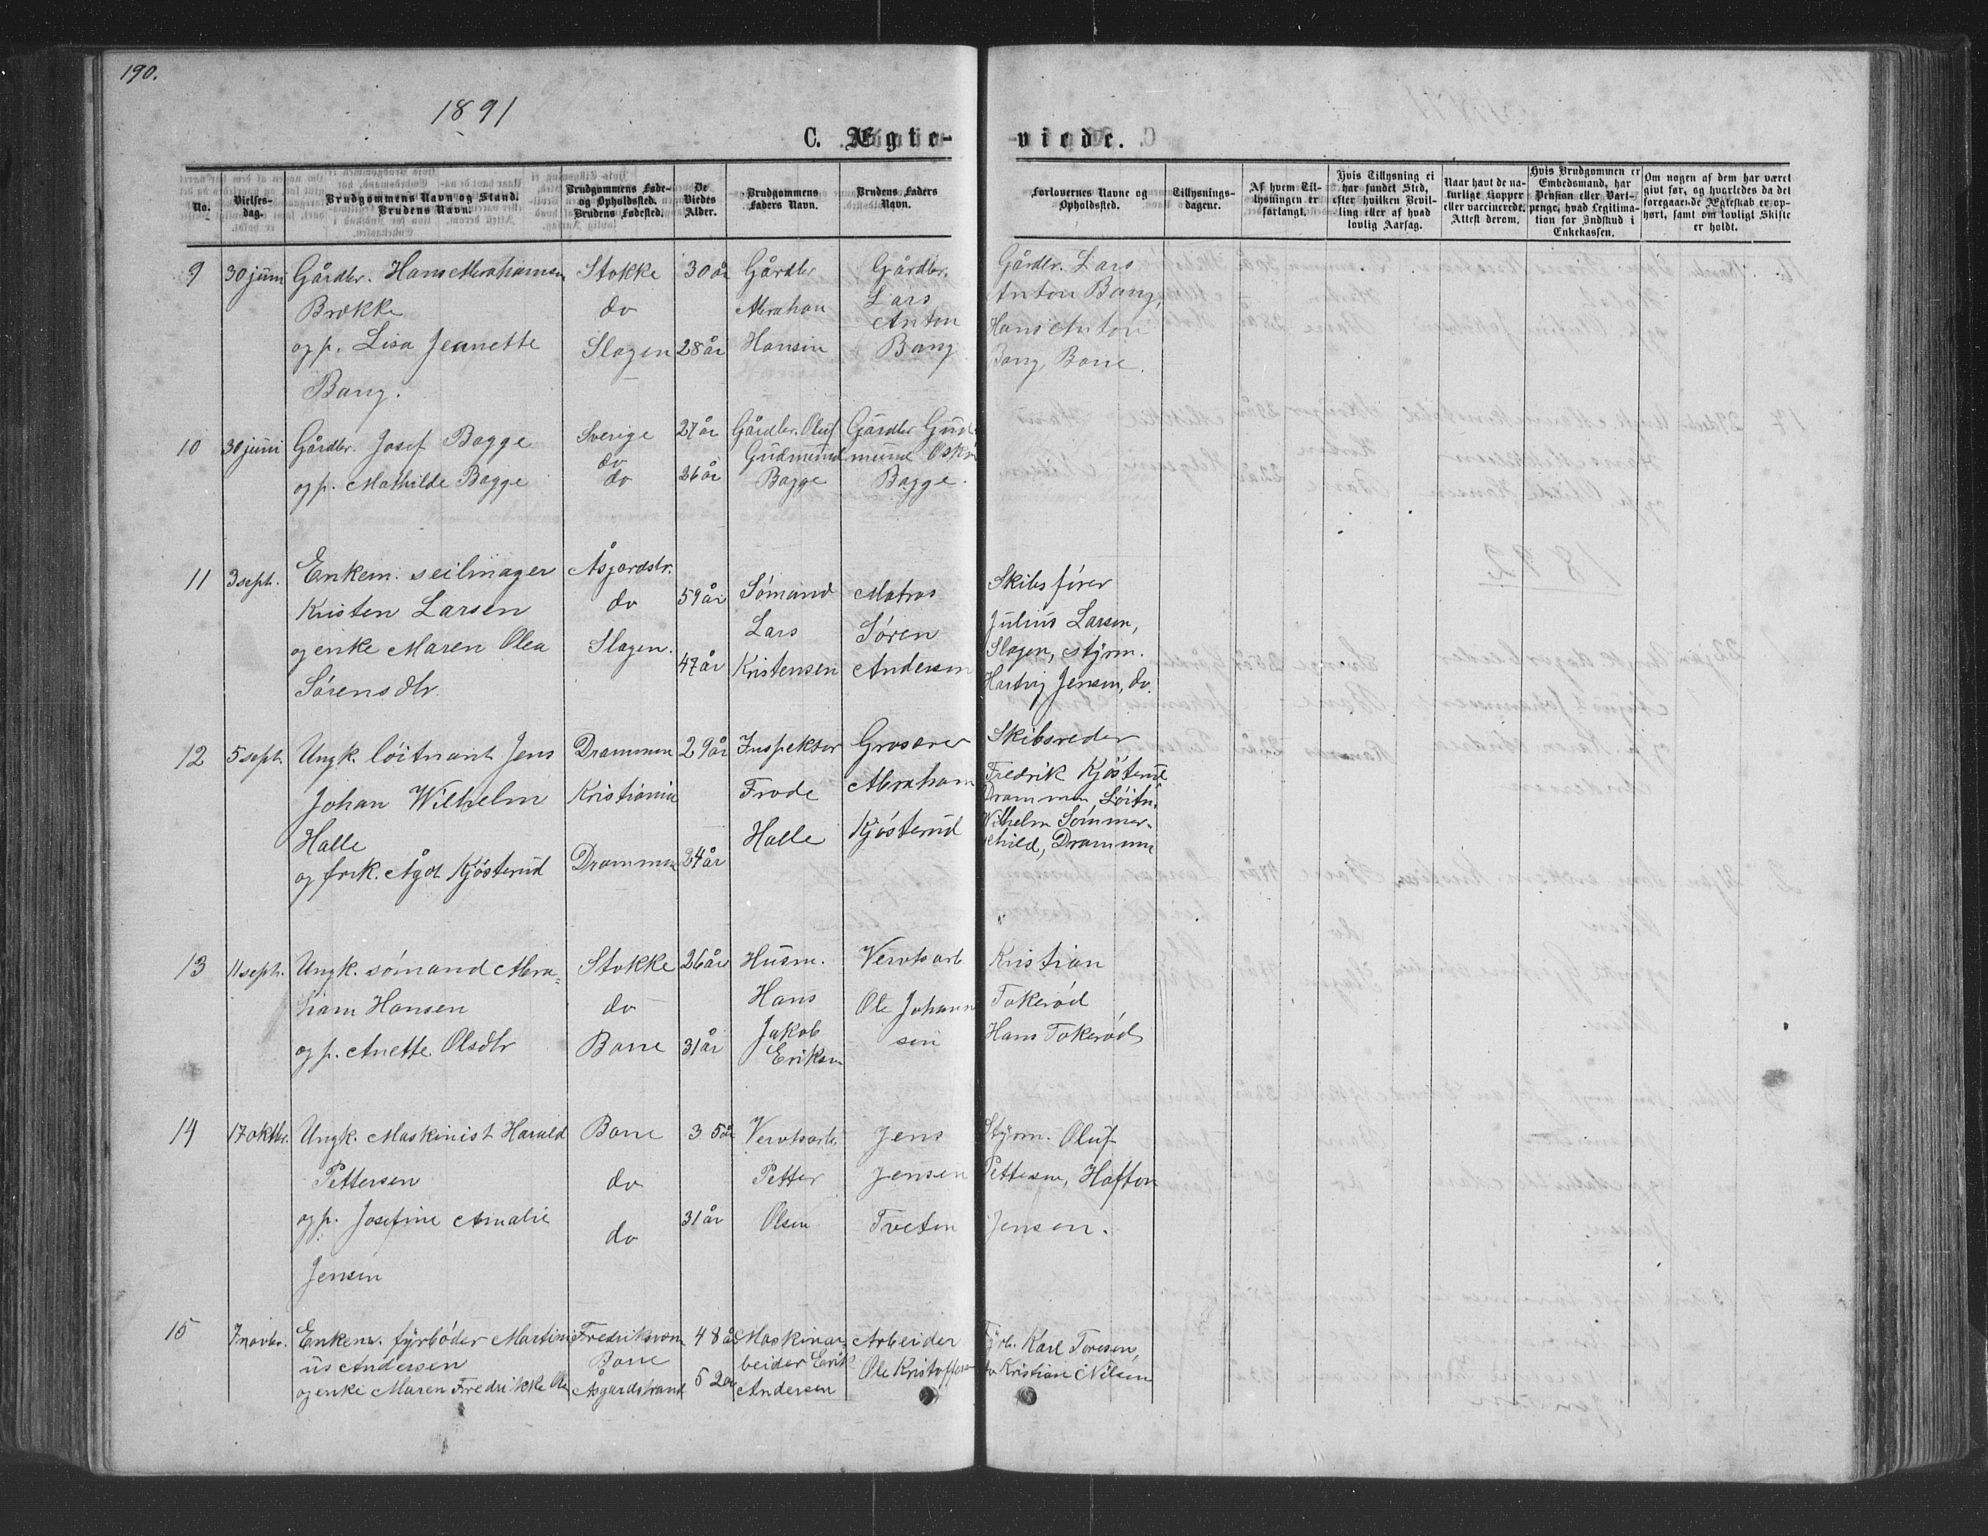 190.
1891
C. Ægte-
viede.
No.
Vielses-
dag.
Brudgommens Navn og Stand.
Brudens Navn.
Brudgommens Føde-
og Opholdssted.
Brudens Fødested.
De
Viedes
Alder.
Brudgommens
Faders Navn.
Brudens Faders
Navn.
Forlovernes Navne og
Opholdssted.
Tillysnings-
dagene.
Af hvem Til-
lysningen er
forlangt.
Hvis Tillysning ei
har fundet Sted,
efter hvilken Bevil-
ling eller af hvad
lovlig Aarsag.
Naar havt de na-
turlige Kopper
eller vaccinerede.
Attest derom.
Hvis Brudgommen er
Embedsmand, har
Pension eller Vart-
penge, hvad Legitima-
tion for Indskud i
Enkekassen.
Om nogen af dem har været
givt før, og hvorledes da det
foregaaende Ægteskab er op-
hørt, samt om lovligt Skifte
er holdt.
9
30 juni
Gårdbr. Hans Abrahamsen
Brække
og p. Lisa Jeanette
Bang.
Stokke
do
Slagen
30 år
28 år
Gårdbr
Abraham
Hansen
Gårdbr.
Lars
Anton
Bang
Gårdbr. Lars
Anton Bang,
Hans Anton
Bang, Borre.
10
30 juni
Gårdbr. Josef Bagge
og p. Mathilde Bagge
Sverige
do
do
27 år
26 år
Gårdbr. Oluf
Gudmund
Bagge
Gårdbr Gud-
mund Oskar
Bagge.
11
3 sept.
Enkem. seilmager
Kristen Larsen
og enke Maren Olea
Sørensdtr.
Åsgårdstr.
do
Slagen.
59 år
47 år
Sømand
Lars
Kristensen
Matros
Søren
Andersen
Skibsfører
Julius Larsen,
Slagen, styrm.
Hartvig Jensen, do.
12
5 sept.
Ungk. løitnant Jens
Johan Wilhelm
Halle
og frk. Ågot Kjøsterud
Drammen
Kristiania
Drammen
29 år
24 år
Inspektør
Frode
Halle
Grosserer
Abraham
Kjøsterud
Skibsreder
Fredrik Kjøsterud
Drammen, Løitn.
Wilhelm Sømmer-
schild, Drammen
13
11 sept.
Ungk. sømand Abra-
ham Hansen
og p. Anette Olsdtr
Stokke
do
Borre
26 år
31 år
Husm.
Hans
Jakob
Eriksen
Vervtsarb
Ole Johann
sen
Kristian
Tokerød
Hans Tokerød
14
17 oktbr.
Ungk. Maskinist Harald
Pettersen
og p. Josefine Amalie
Jensen
Borre
do
do
35 år
31 år
Vervtsarb.
Petter
Olsen
Jens
Jensen
Tveten
Styrm. Oluf
Pettersen, Hafton
Jensen.
15
7 novbr.
Enkem. fyrbøder Martin
us Andersen
og enke Maren Fredrikke Ols
Fredriksværn
Borre
Åsgardstrand
48 år
52 år
Maskinar-
beider Erik
Andersen
Arbeider
Ole Kristoffersen
Fyrb. Karl Toresen,
do Kristian Nilsen